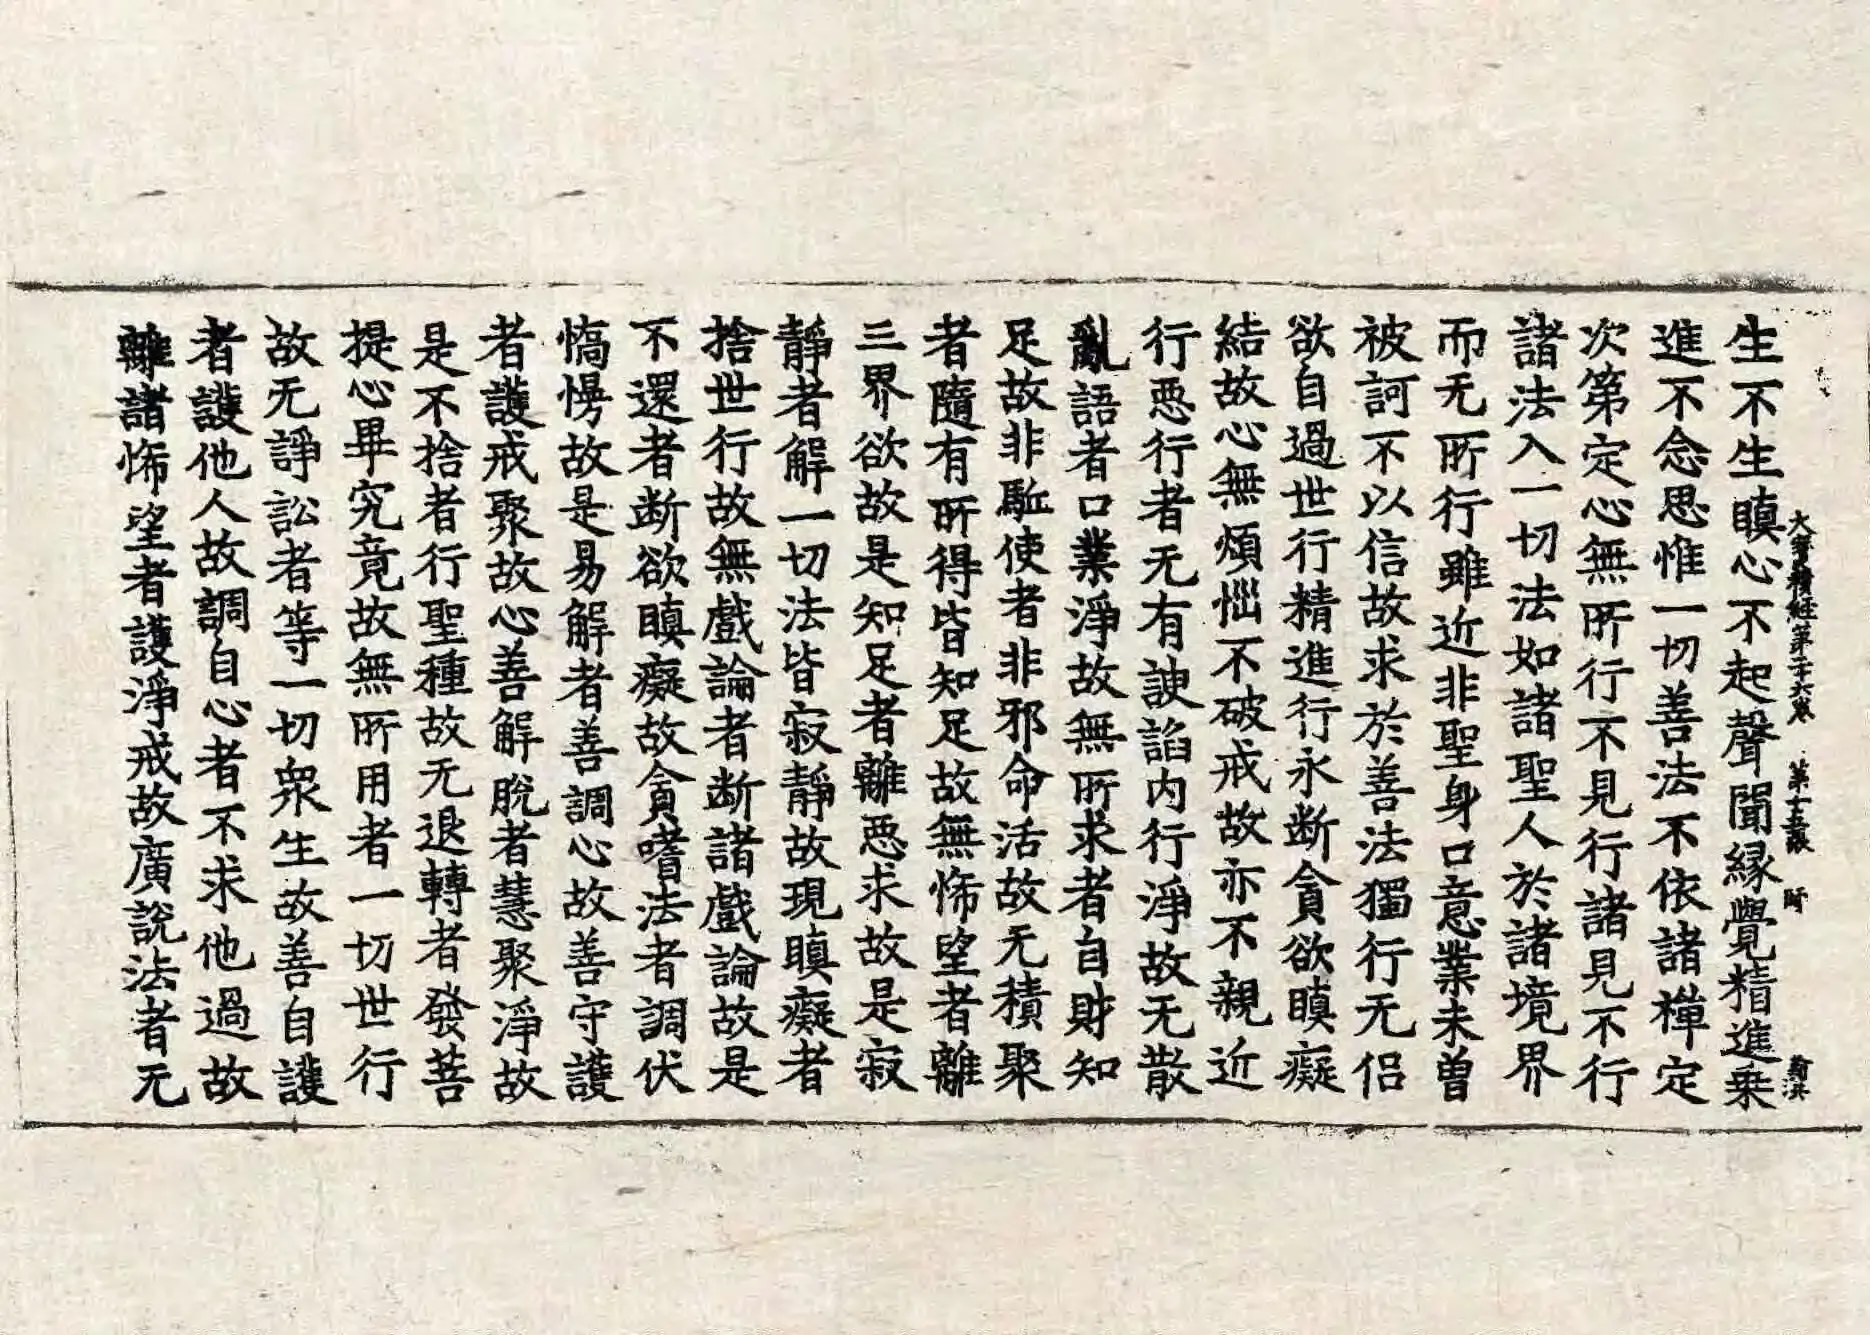 生不生瞋心不起聲聞緣覺精進乗
大寶積經第二十六卷 第十五張 翰淇
進不念思惟一切善法不依諸禪定
次第定心無所行不見行諸見不行
諸法入一切法如諸聖人於諸境界
而无所行雖近非聖身口意業未曽
被訶不以信故求於善法獨行无侣
欲自過世行精進行永断貪欲瞋癡
結故心無煩惱不破戒故亦不親近
行惡行者无有諛諂内行淨故无散
亂語者口業淨故無所求者自財知
足故非駈使者非邪命活故无積聚
者隨有所得皆知足故無怖望者離
三界欲故是知足者離惡求故是寂
靜者解一切法皆寂靜故現瞋癡者
捨世行故無戲論者断諸戲論故是
不還者断欲瞋癡故貪嗜法者調伏
憍慢故是易解者善調心故善守護
者護戒聚故心善解脫者慧聚淨故
是不捨者行聖種故无退轉者發菩
提心畢究竟故無所用者一切世行
故无諍訟者等一切衆生故善自護
者護他人故調自心者不求他過故
離諸怖望者護淨戒故廣說法者无